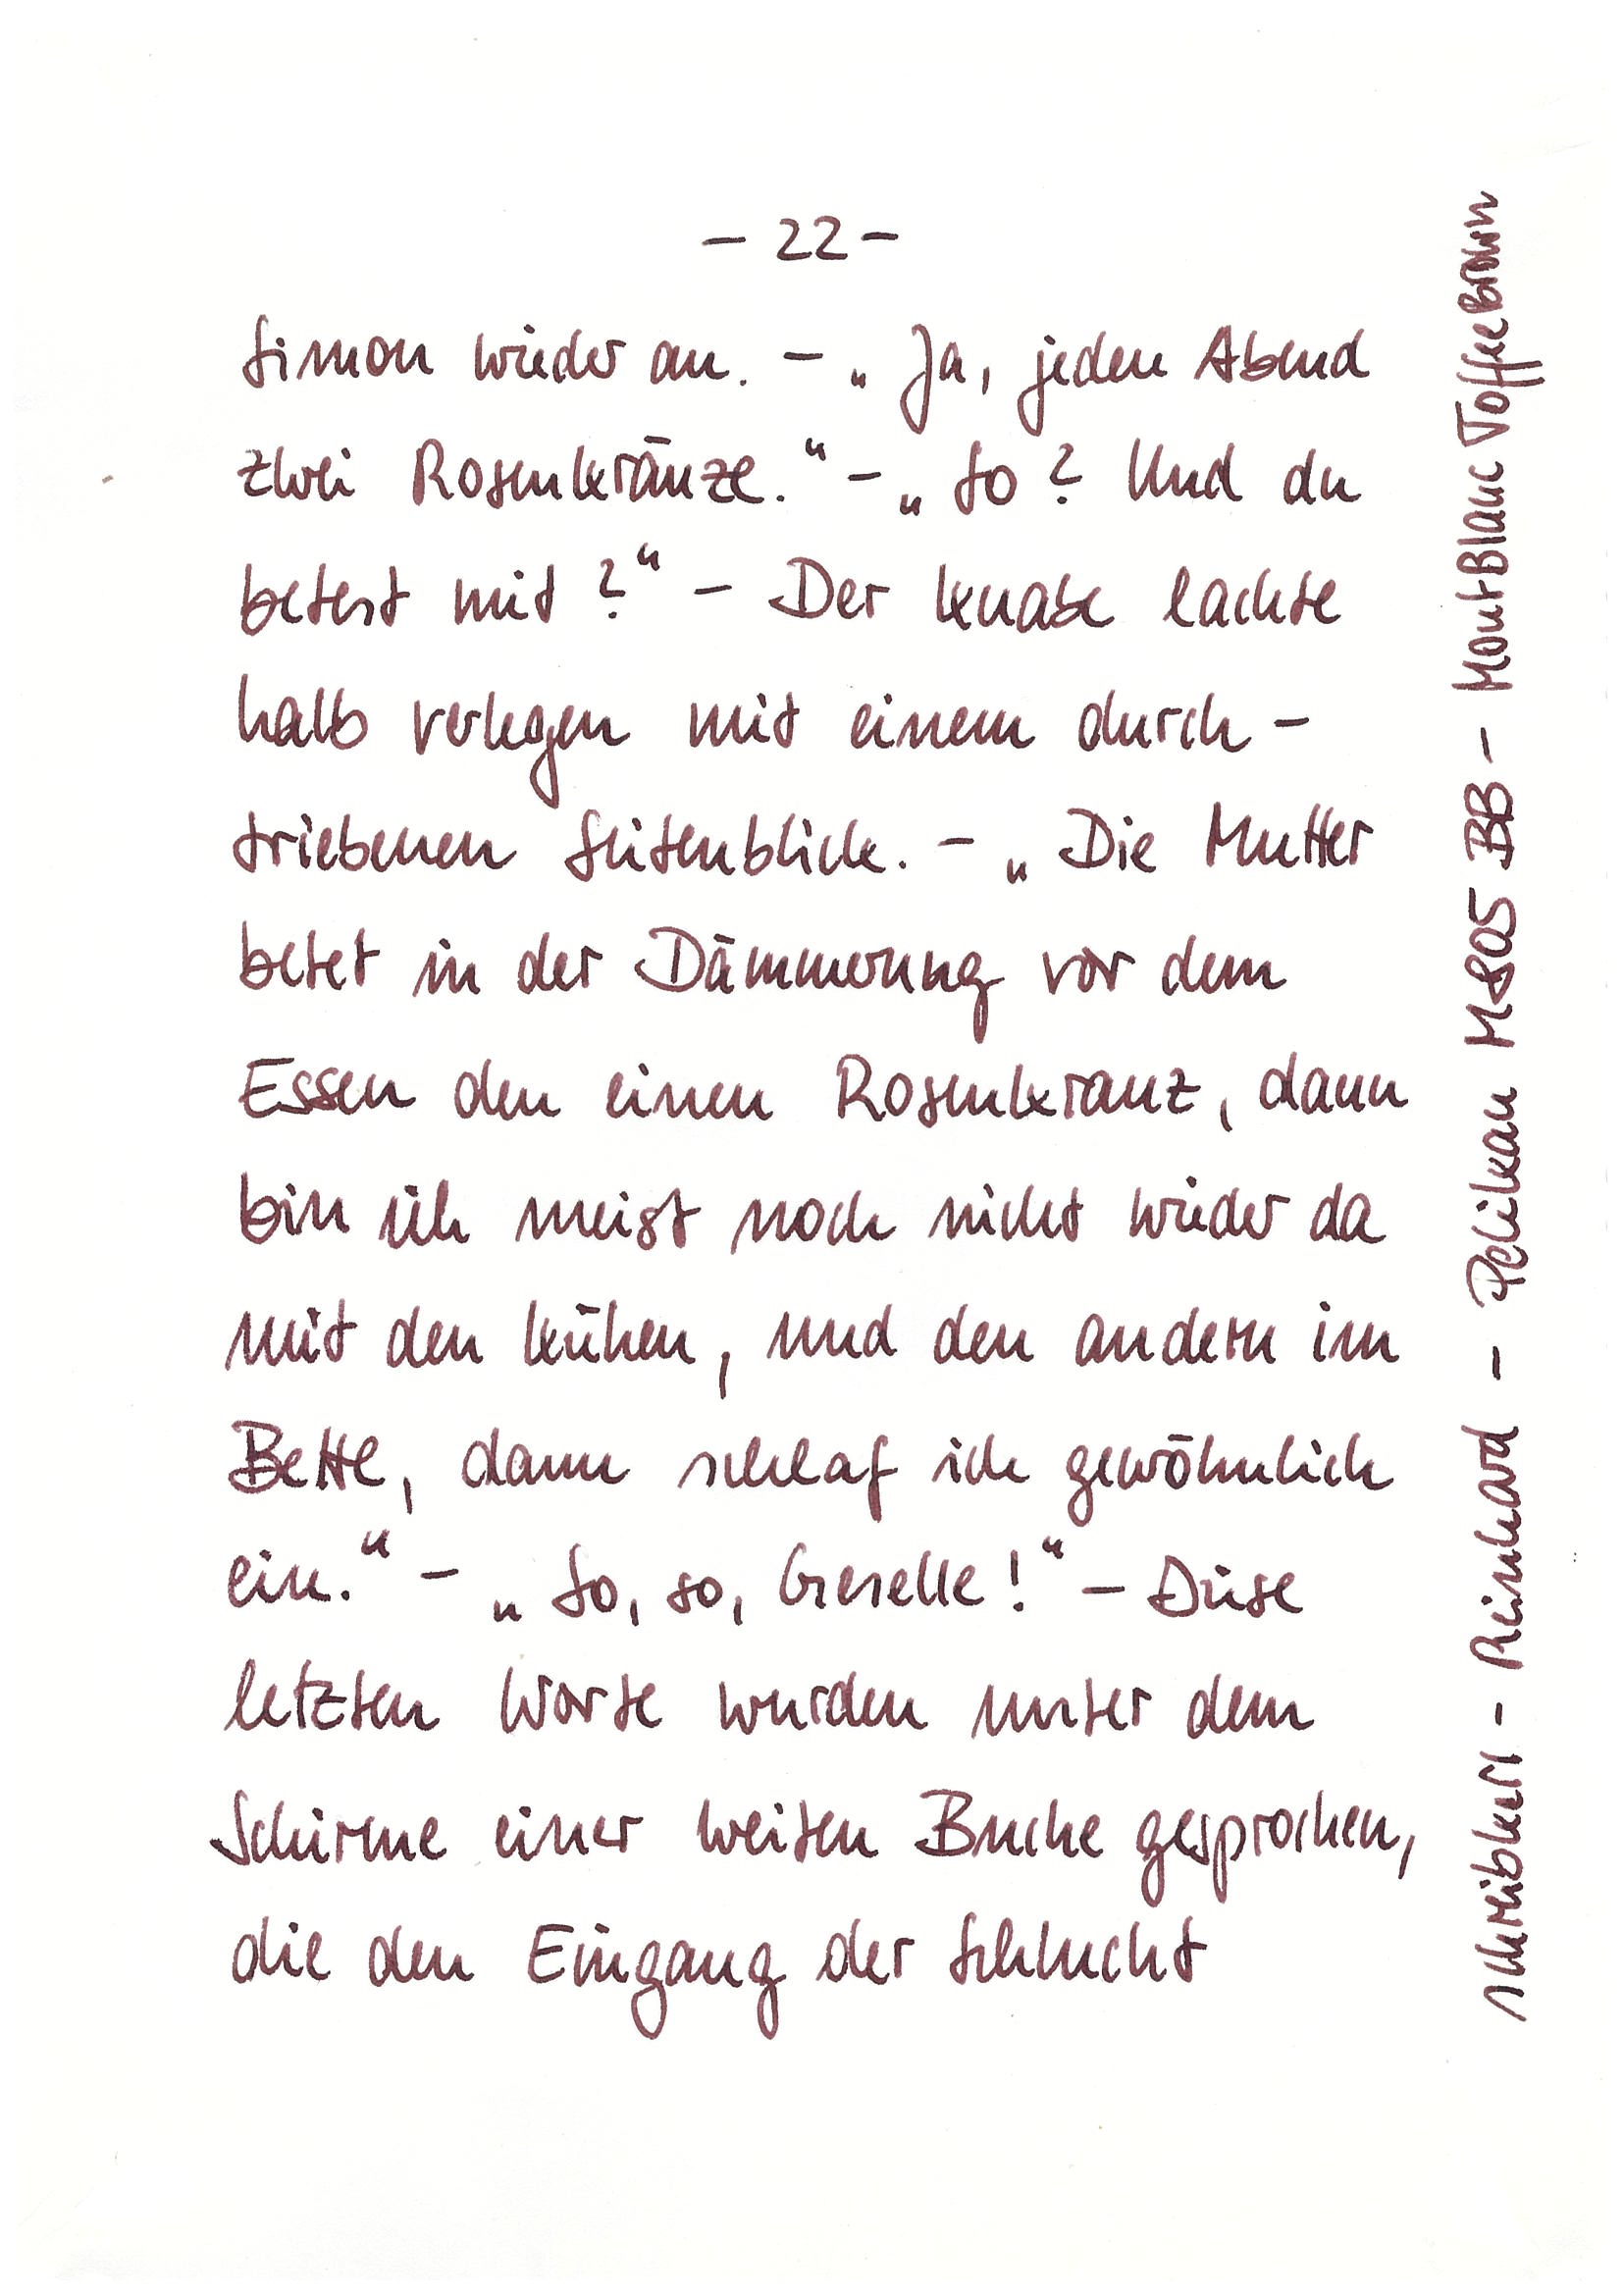 - 22 -
Simon wieder an. – „Ja, jeden Abend
zwei Rosenkränze.“ – „So? Und du
betest mit?“ – Der Knabe lachte
halb verlegen mit einem durch-
triebenen Seitenblick. – „Die Mutter
betet in der Dämmerung vor dem
Essen den einen Rosenkranz, dann
bin ich meist noch nicht wieder da
mit den Kühen, und den andern im
Bette, dann schlaf ich gewöhnlich
ein.“ – „So, so, Geselle!“ – Diese
letzten Worte wurden unter dem
Schirme einer weiten Buche gesprochen,
die den Eingang der Schlucht
schreibkerl - Reinhard - Pelikan M805 BB - MontBlanc ToffeeBrown